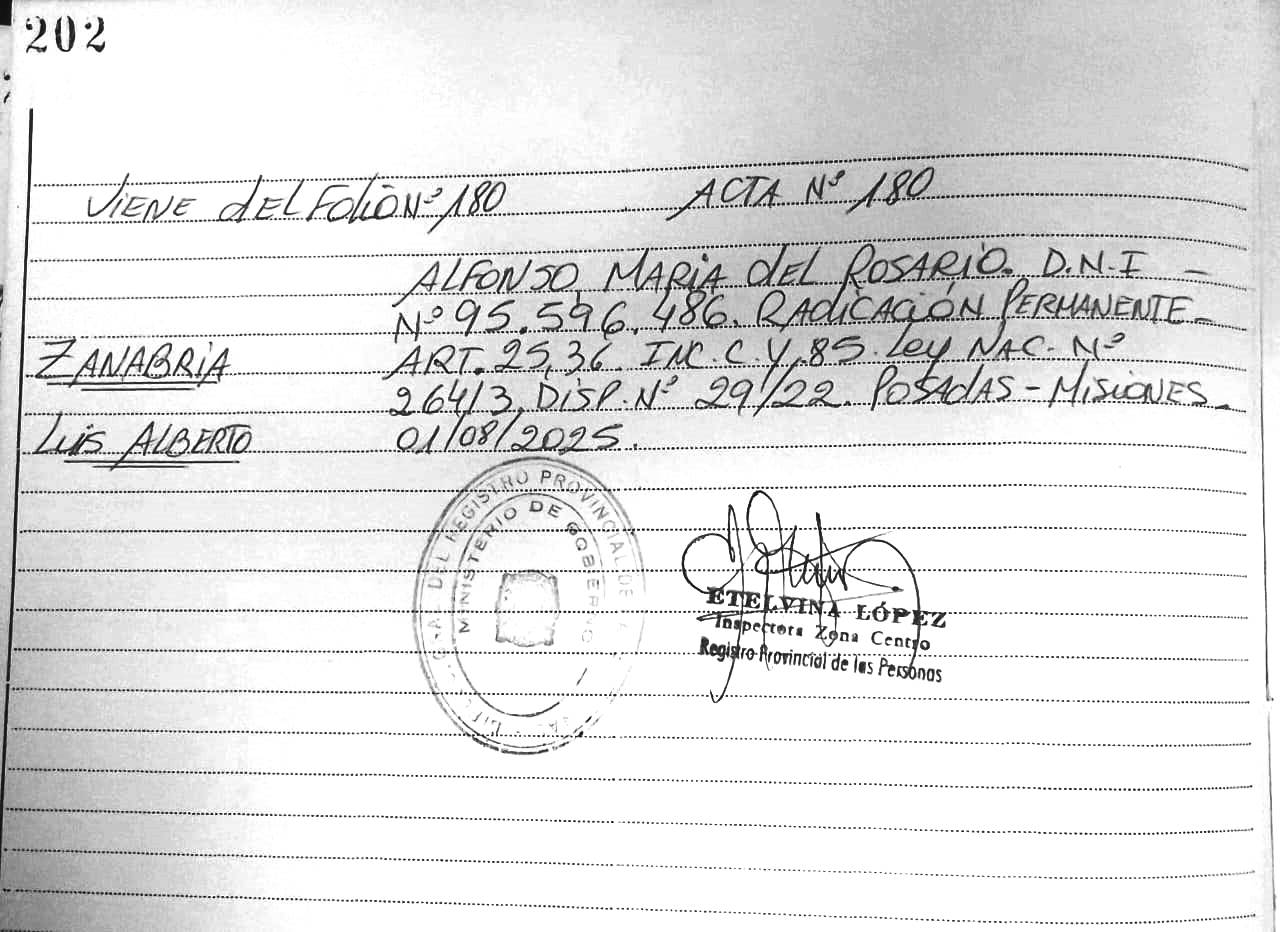 202
VIENE DEL FOLIO Nº 180 ACTA Nº 180
ALFONSO, MARIA DEL ROSARIO. D.N.I -
Nº 95.596.486. RADICACIÓN PERMANENTE-
ZANABRIA
ART. 25,36 INC. C. Y, 85. Ley NAC. Nº
26413, DISP. Nº 29/22. POSADAS - MISIONES-
LUIS ALBERTO
01/08/2025.
DEL REGISTRO PROVINCIAL DE
MINISTERIO DE GOBIERNO
ETELVINA LÓPEZ
Inspectora Zona Centro
Registro Provincial de las Personas